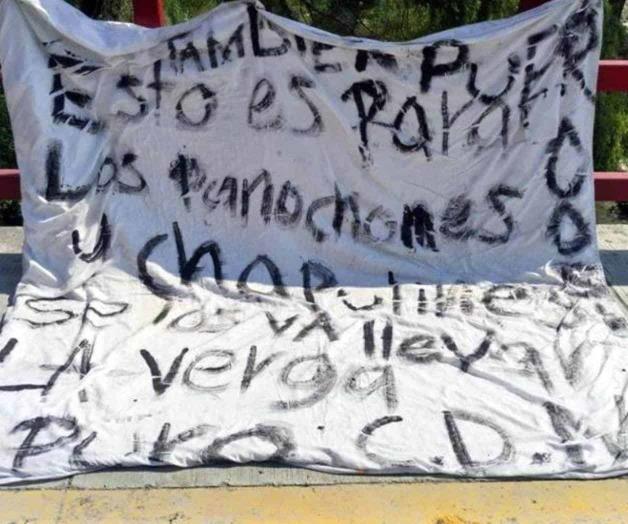 TAMBIEN PUER
Esto es Para
Los panochomes
y chapulines
se los va llevar
LA verga
Puro C.D.N